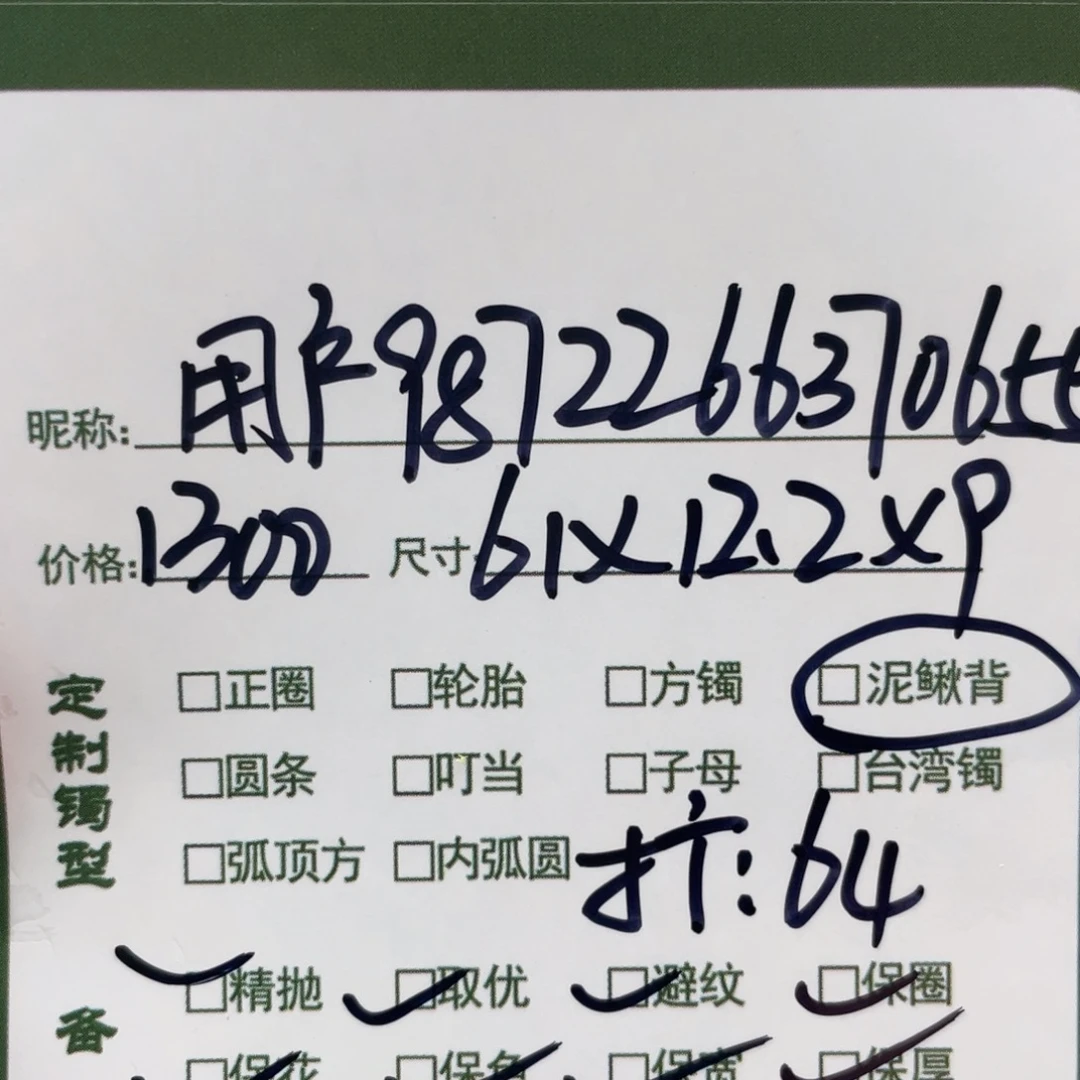 昵称: 用户98722663706
价格: 1300 尺寸: 61×12.2×9
定制镯型
□正圈 □轮胎 □方镯 □泥鳅背
□圆条 □叮当 □子母 □台湾镯
□弧顶方 □内弧圆 扩: 64
备
□精抛 □取优 □避纹 □保圈
□保花 □保色 □保宽 □保厚